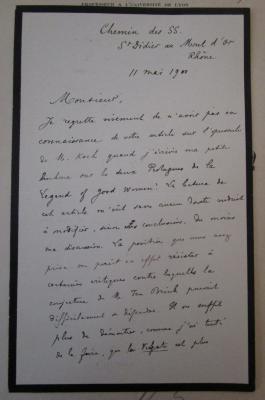 PROFESSEUR A L'UNIVERSITÉ DE LYON
Chemin des SS.
St Didier au Mont d'Or
Rhône
11 mai 1900
Monsieur,
Je regrette vivement de n'avoir pas eu
connaissance de votre article sur l'opuscule
de M. Koch quand j'écrivis ma petite
sur les deux Prologues de la
Legend of Good Women. La lecture de
cet article m'eût sans aucun doute induit
à modifier, sinon mes conclusions, du moins
ma discussion. La position que vous avez
prise me paraît en effet résister à
certaines critiques contre lesquelles la
conjecture de M. Ten Brink pouvait
difficilement se défendre. Il ne suffit
plus de démontrer, comme j'ai tenté
de le faire, que est plus